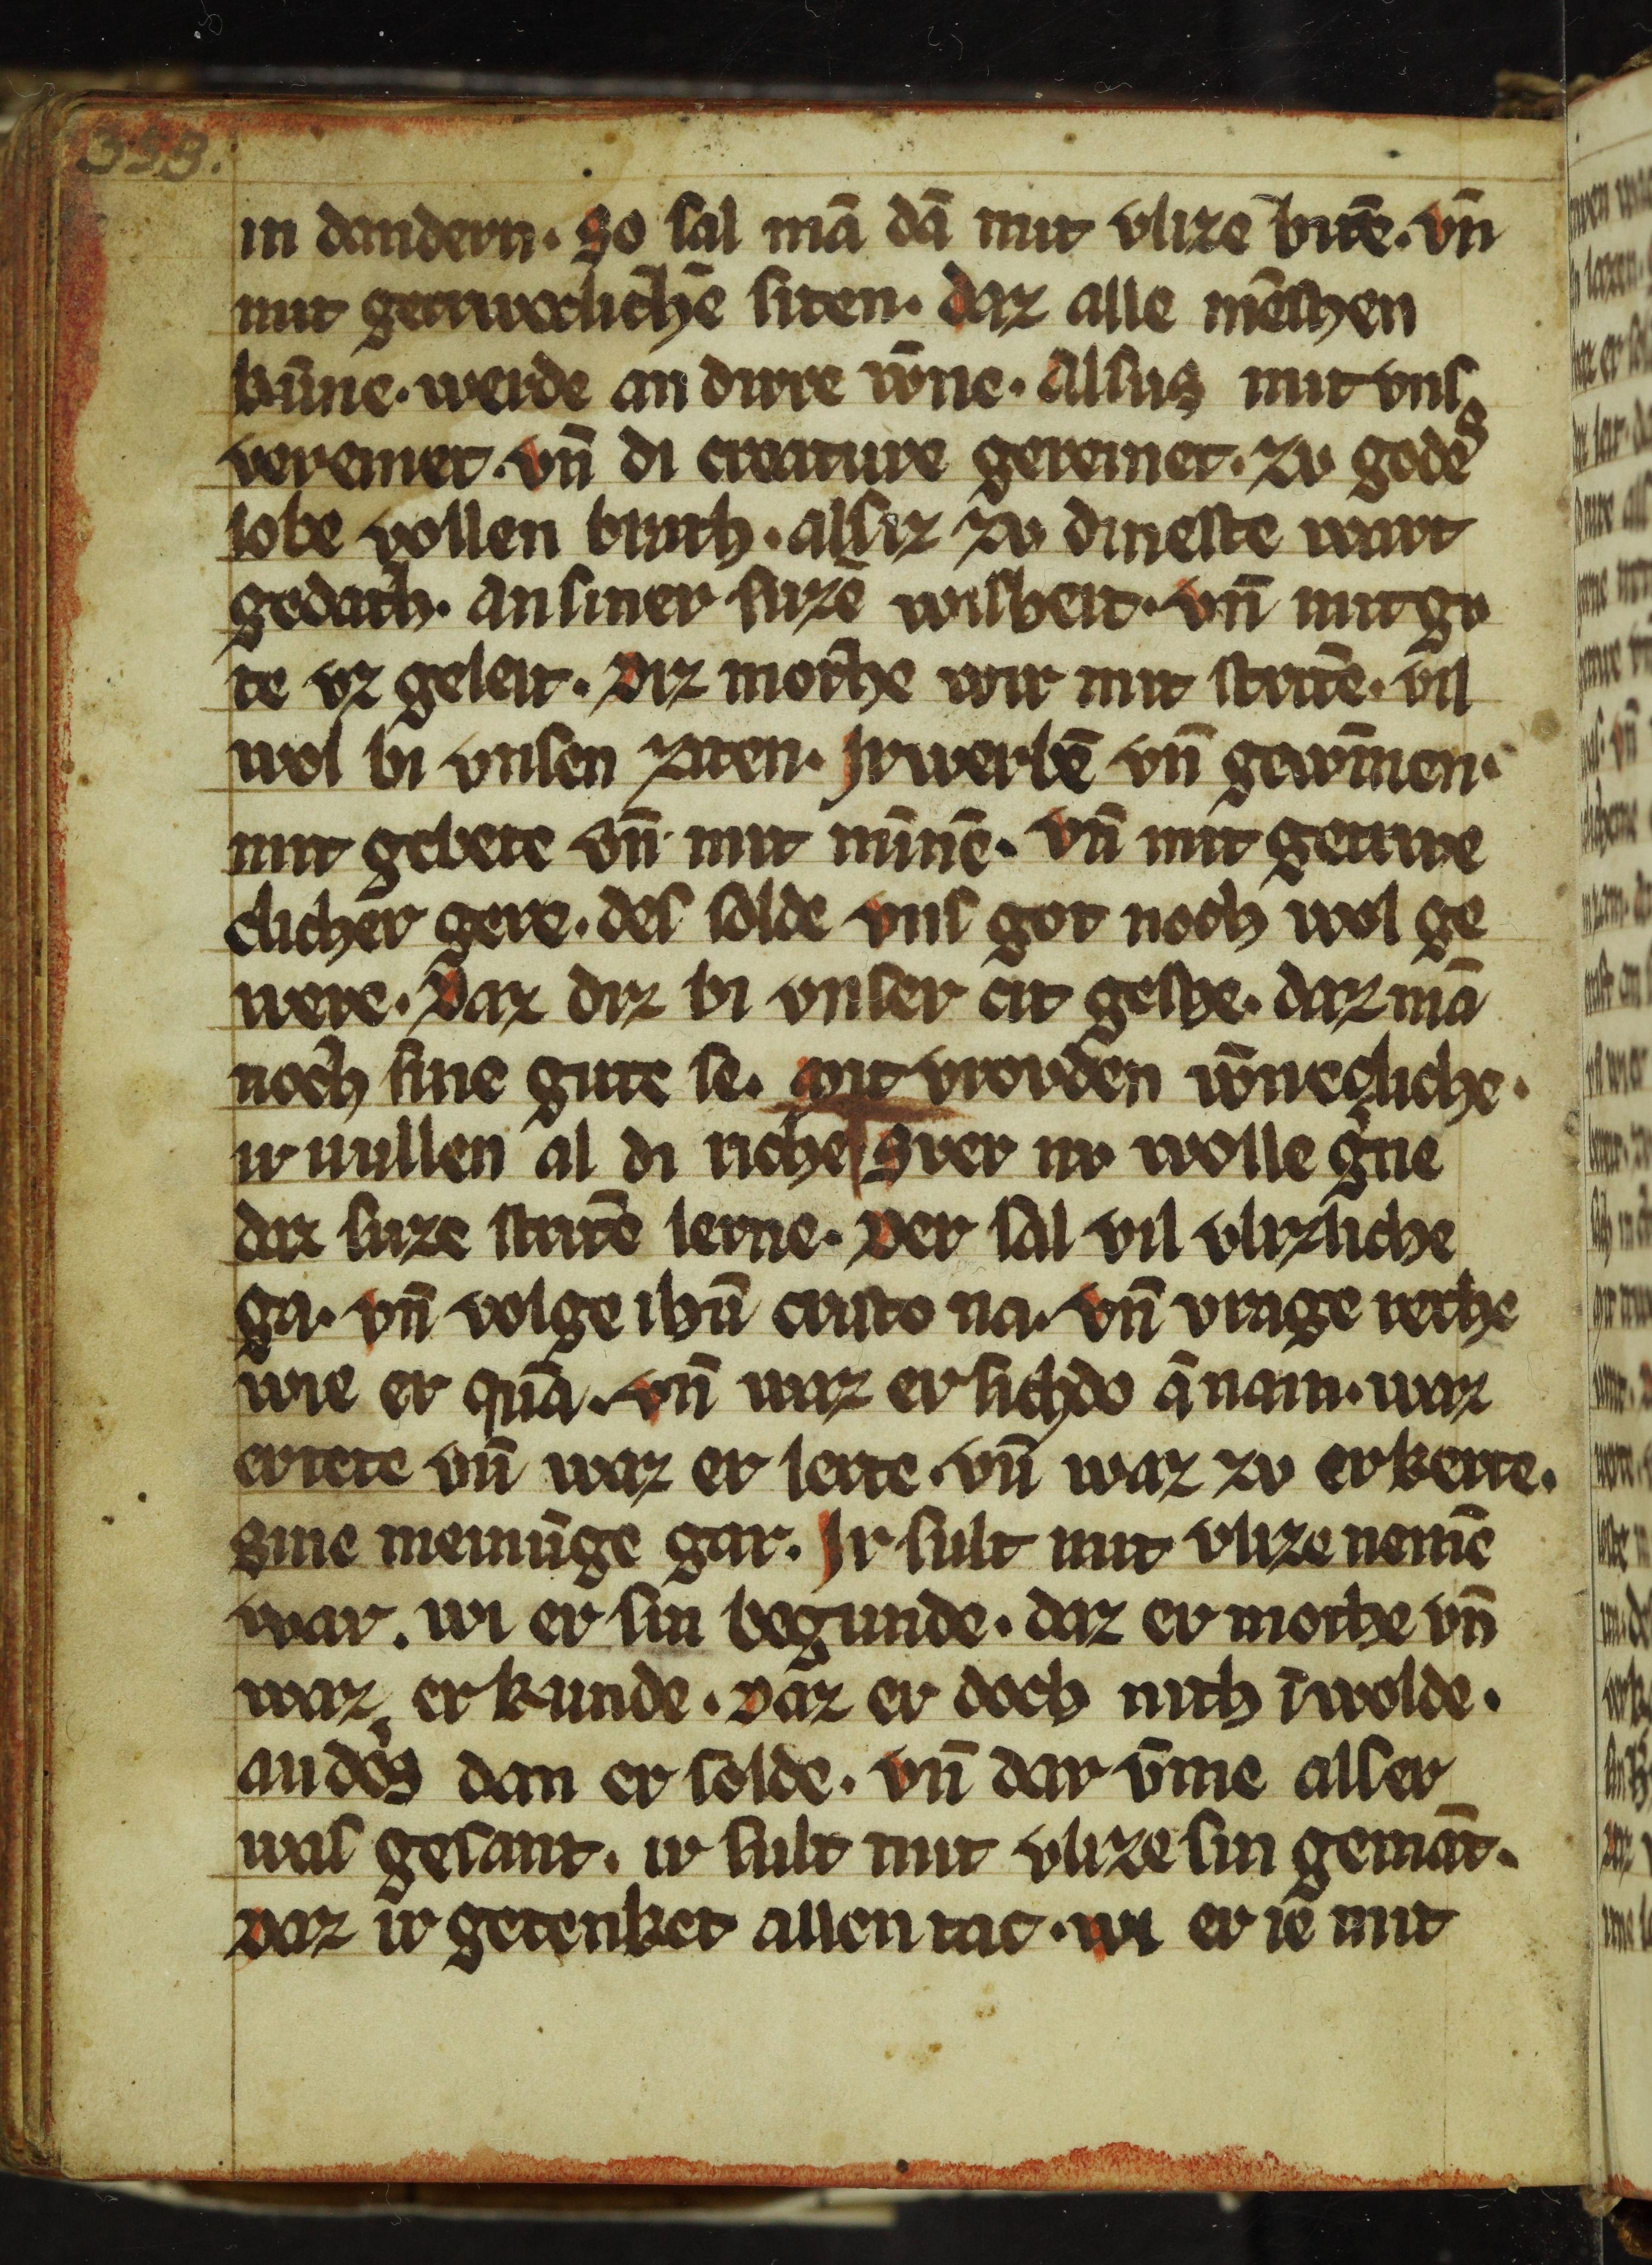 338.
in dandern. So sal mā dā mit vlize bitē. vn̄
mit getruwelichē siten. daz alle mēschen
kūne. werde an dirre wn̄ne. Alsus mit vns
vereinet. vn̄ di creature gereinet. zv godes
lobe vollen brath. alsiz zv dineste wart
gedath. an siner suzē wisheit. vn̄ mit gv
te vz geleit. Diz mothe wir mit stritē. vil
wol bi vnsen ziten. Irwerbē vn̄ gewīnen.
mit gebete vn̄ mit mīnē. vn̄ mit getruwe
clicher gere. des solde vns got noch wol ge
were. Daz diz bi vnser cit geshe. daz mā
noch sine gute se. mit vrovden wn̄necliche.
ir uullen al di riche Swer nv wolle ḡne
daz suze stritē lerne. Der sal vil vlizliche
ga. vn̄ volge ihū cristo na. vn̄ vrage rethe
wie er quā. vn̄ waz er sich do ā nam. waz
er tete vn̄ waz er lerte. vn̄ waz zv er kerte.
Sine meinūge gar. Ir sult mit vlize nemē
war. wi er sin begunde. daz er mothe vn̄
waz er kunde. Daz er doch nith ī wolde.
anders dan er solde. vn̄ dar v̄me alser
was gesant. ir sult mit vlize sin gemāt.
Daz ir getenket allen tac. wi er ie mit